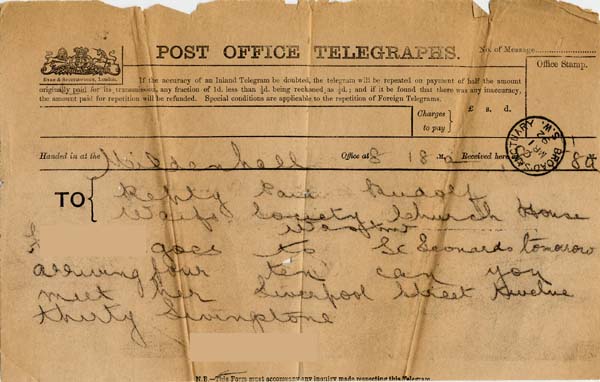 POST OFFICE TELEGRAPHS.
No. of Message
Office Stamp.
If the accuracy of an Inland Telegram be doubted, the telegram will be repeated on payment of half the amount
originally paid for its transmission, any fraction of 1d. less than ½d. being reckoned as ½d.; and if it be found that there was any inaccuracy,
the amount paid for repetition will be refunded. Special conditions are applicable to the repetition of Foreign Telegrams.
Charges to pay
£ s. d.
Handed in at the Mildenhall Office at 8 18 M. Received here
TO
Reply Paid Rudolf
Waifs Society Church House
Wesmr
goes to St Leonards tomorow
arriving four ten can you
meet her Liverpool Street twelve
thirty Livingstone
N.B.—This Form must accompany any inquiry made respecting this Telegram.